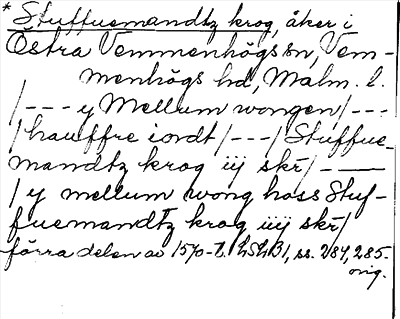 * Stuffuemandtz krog, åker i
Östra Vemmenhögs sn, Vem-
menhögs hd, Malm. l.
/--- y Mellum wongen/---
/hauffre iordt/---/Stuffue-
mandtz krog iij skr/---
/y mellum wong hoss Stuf-
fuemandtz krog iiij skr/
förra delen av 1570-t. LSLB1, ss. 284, 285.
orig.